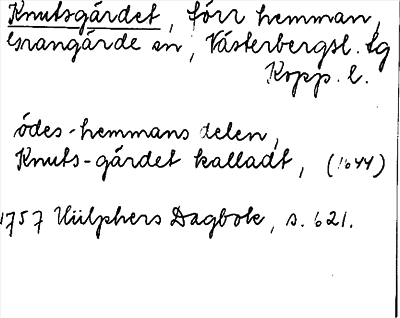 Knutsgärdet, förr hemman,
Grangärde sn, Västerbergsl. tg
Kopp. l.
ödes-hemmans delen,
Knuts-gärdet kalladt, (1644)
1757 Hülphers Dagbok, s. 621.